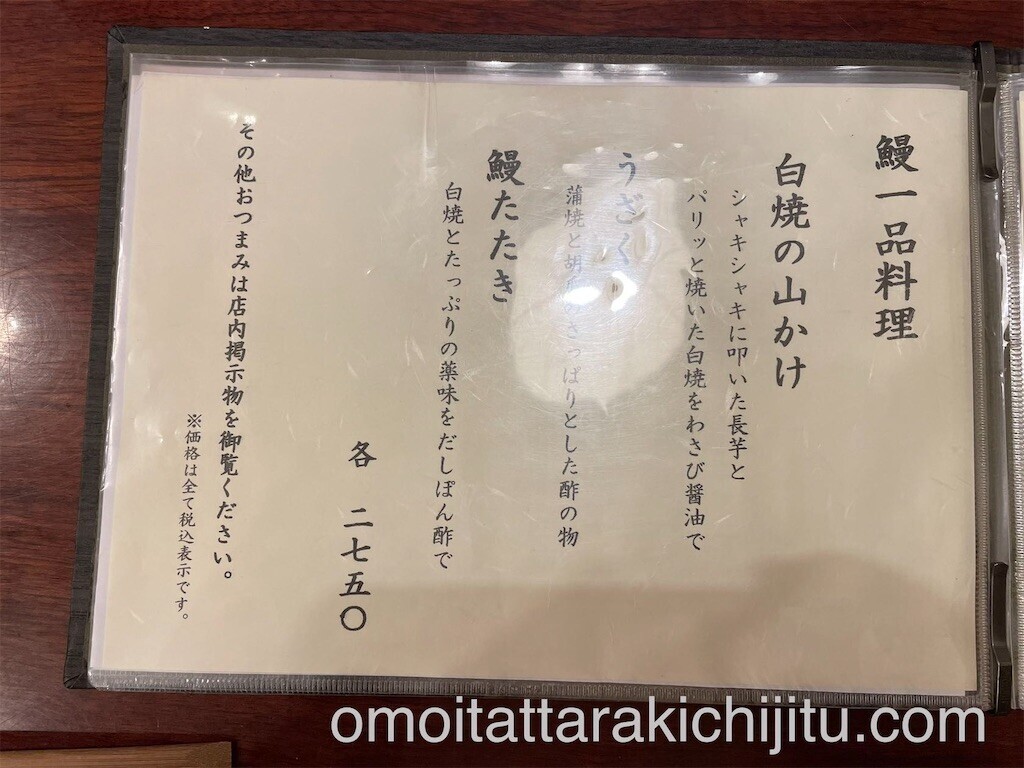 鰻一品料理
白焼の山かけ
シャキシャキに叩いた長芋と
パリッと焼いた白焼をわさび醤油で
うざく
蒲焼と胡瓜のさっぱりとした酢の物
鰻たたき
白焼とたっぷりの薬味をだしぽん酢で
各 二七五〇
その他おつまみは店内掲示物を御覧ください。
※価格は全て税込表示です。
omoitattarakichijitu.com